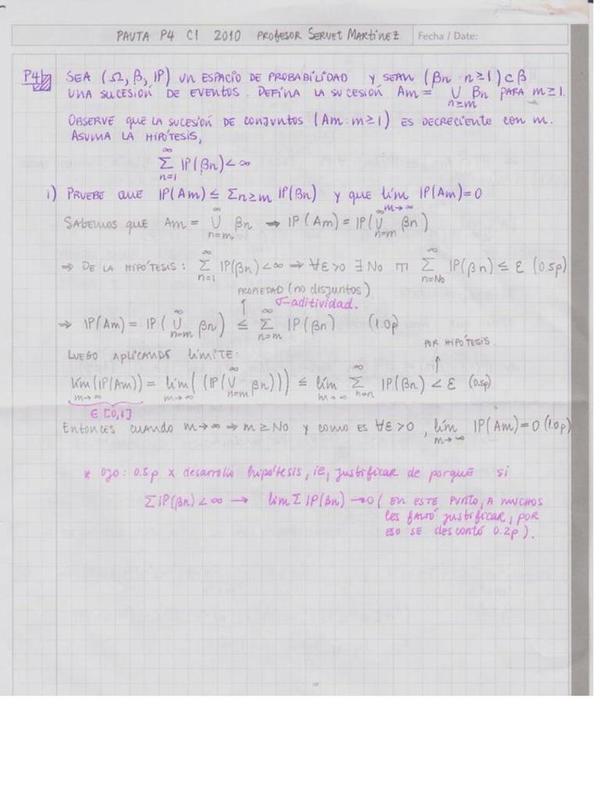 PAUTA P4 C1 2010 PROFESOR SERVET MARTÍNEZ Fecha / Date:
P4 SEA (Ω, β, IP) UN ESPACIO DE PROBABILIDAD Y SEAN (βn n≥1) ⊂ β
UNA SUCESIÓN DE EVENTOS. DEFINA LA SUCESIÓN Am = ∪_{n≥m} βn PARA m≥1.
OBSERVE QUE LA SUCESIÓN DE CONJUNTOS (Am: m≥1) ES DECRECIENTE CON m.
ASUMA LA HIPÓTESIS,
∑_{n=1}^{∞} IP(βn) < ∞
i) PRUEBE QUE IP(Am) ≤ Σ_{n≥m} IP(βn) Y QUE lím_{m→∞} IP(Am)=0
SABEMOS QUE Am = ∪_{n=m}^{∞} βn → IP(Am) = IP(∪_{n=m}^{∞} βn)
⇒ DE LA HIPÓTESIS: ∑_{n=1}^{∞} IP(βn) < ∞ ⇒ ∀ε>0 ∃ No ∑_{n=No}^{∞} IP(βn) ≤ ε (0.5p)
PROPIEDAD (no disjuntos)
σ-aditividad.
⇒ IP(Am) = IP(∪_{n=m}^{∞} βn) ≤ ∑_{n=m}^{∞} IP(βn) (1.0p)
LUEGO APLICANDO LÍMITE: POR HIPÓTESIS
lím_{m→∞}(IP(Am)) = lím_{m→∞}((IP(∪_{n=m}^{∞} βn))) ≤ lím_{m→∞} ∑_{n=m}^{∞} IP(βn) < ε (0.5p)
∈ [0,1]
Entonces cuando m→∞ ⇒ m ≥ No y como es ∀ε>0, lím_{m→∞} IP(Am)=0 (1.0p)
* Ojo: 0.5p x desarrollo hipótesis, ie, justificar de porqué si
∑IP(βn)<∞ → lím ∑ IP(βn) → 0 (EN ESTE PUNTO, A MUCHOS
les FALTÓ justificar, POR
ESO SE DESCONTÓ 0.2p).